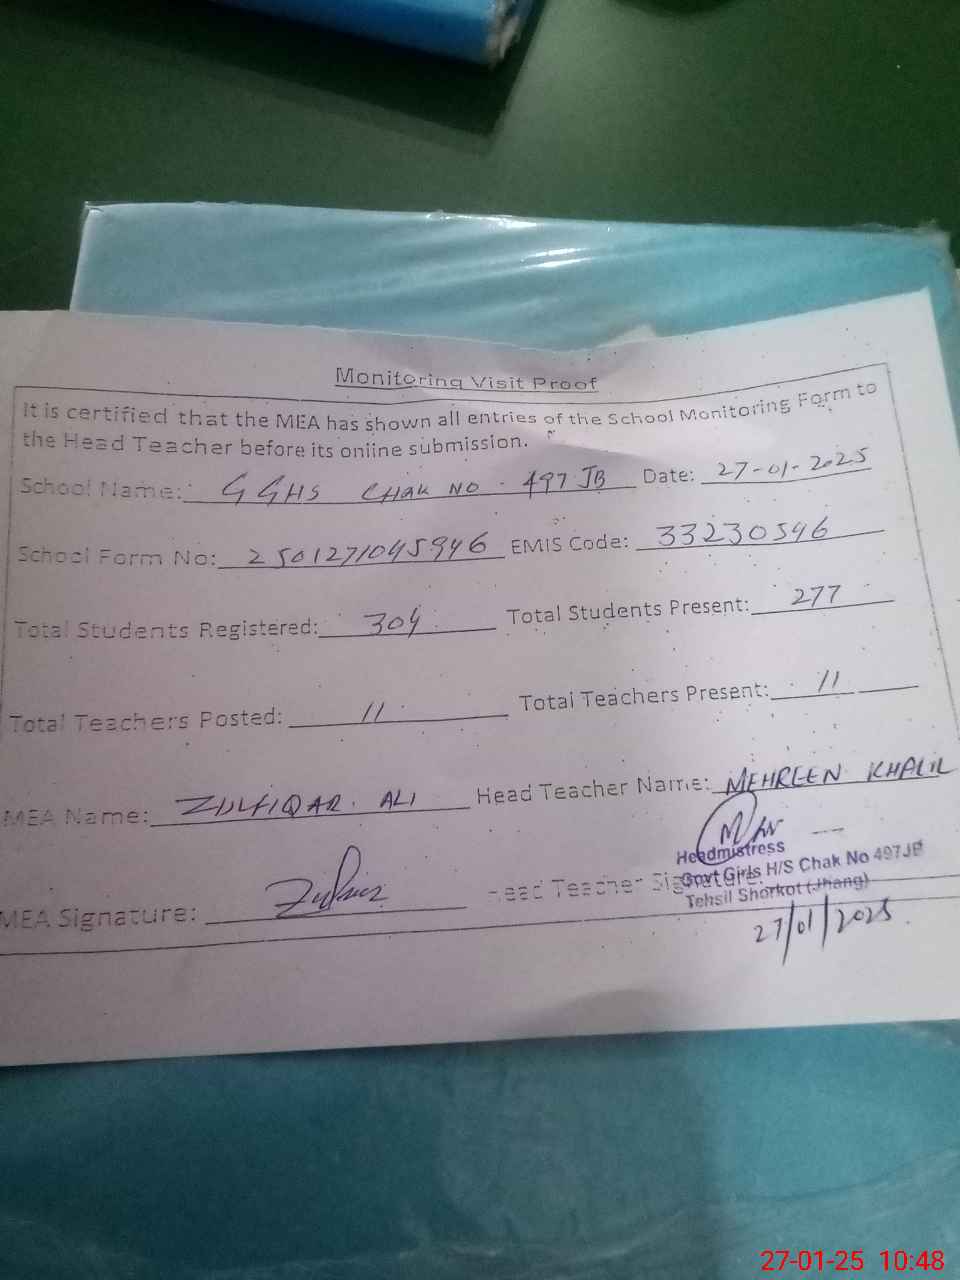 Monitoring Visit Proof
It is certified that the MEA has shown all entries of the School Monitoring Form to
the Head Teacher before its online submission.
School Name: GGHS CHAK NO. 497 JB Date: 27-01-2025
School Form No: 2501271045946 EMIS Code: 33230546
Total Students Registered: 304 Total Students Present: 277
Total Teachers Posted: 11 Total Teachers Present: 11
MEA Name: ZULFIQAR ALI Head Teacher Name: MEHREEN KHALIL
MEA Signature: Head Teacher Signature:
Headmistress
Govt Girls H/S Chak No 497JB
Tehsil Shorkot (Jhang)
27/01/2025
27-01-25 10:48